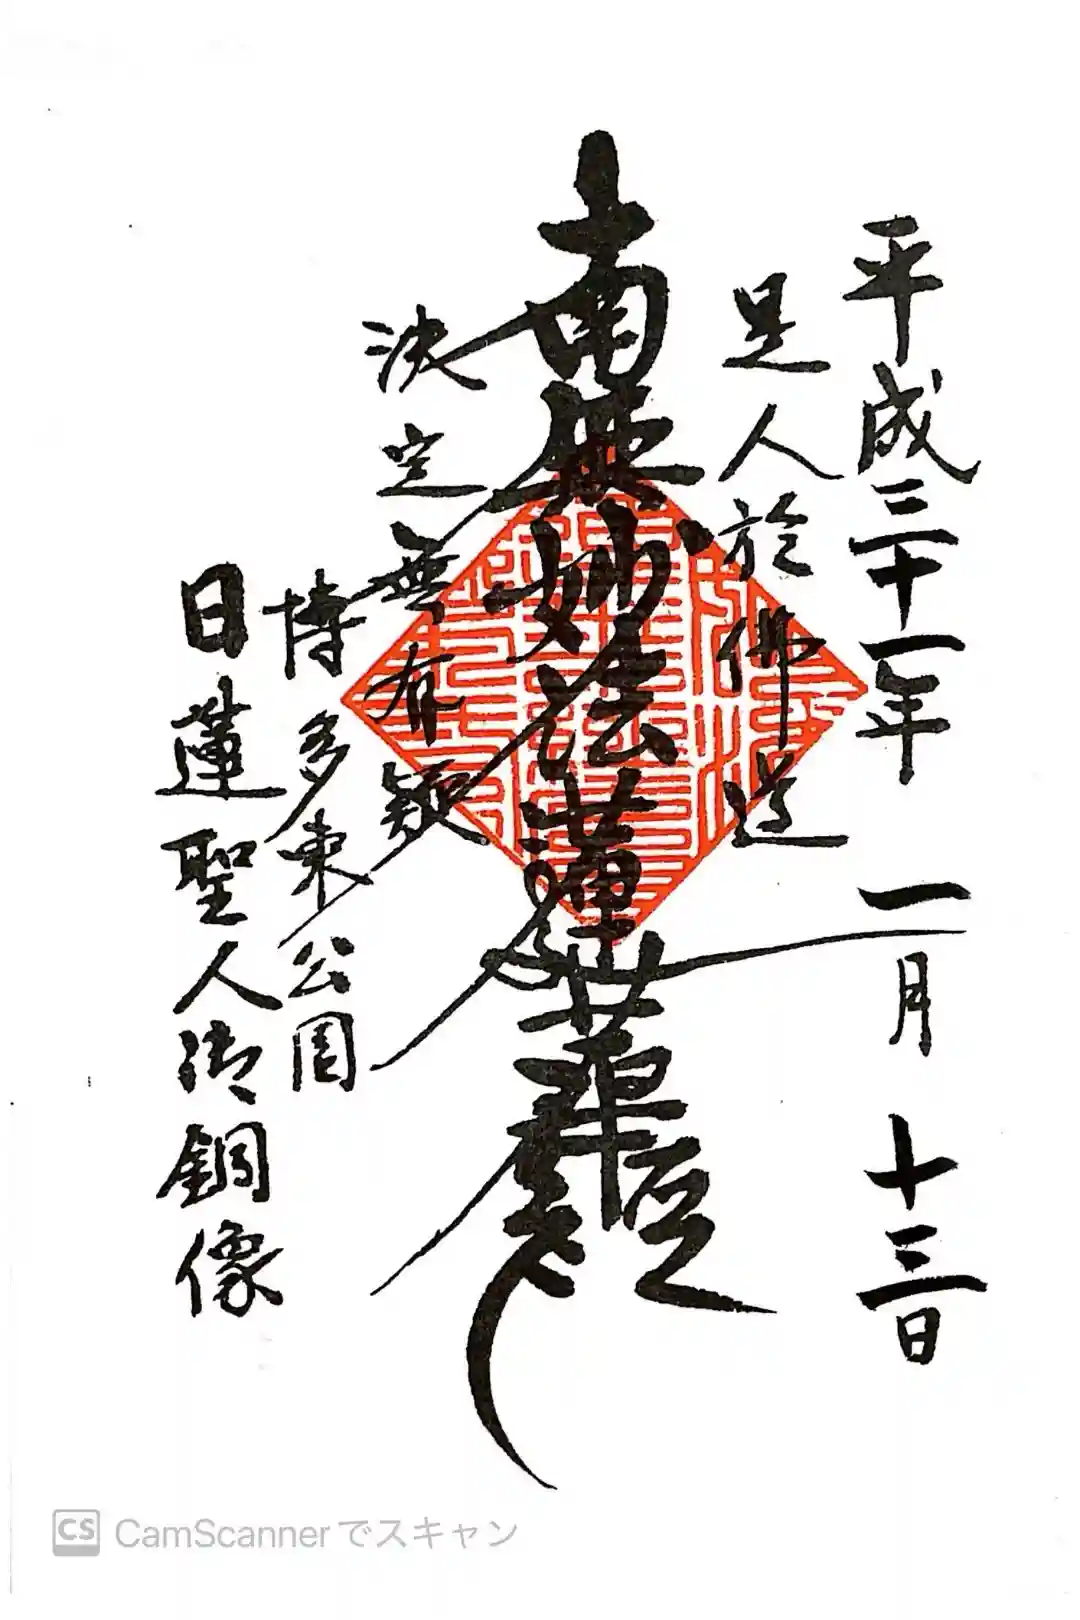 平成三十一年 一月 十三日
是人於佛道
南無妙法蓮華経
決定無有疑
博多東公園
日蓮聖人御銅像
CS CamScannerでスキャン